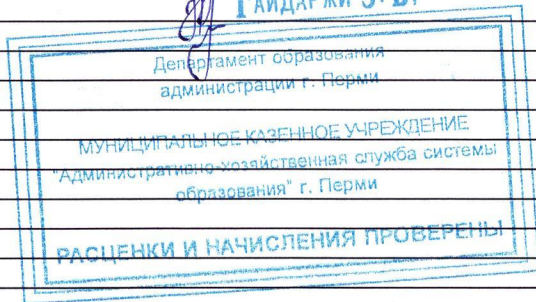 ГАЙДАРЖИ Э. В.
Департамент образования
администрации г. Перми
МУНИЦИПАЛЬНОЕ КАЗЕННОЕ УЧРЕЖДЕНИЕ
"Административно-хозяйственная служба системы
образования" г. Перми
РАСЦЕНКИ И НАЧИСЛЕНИЯ ПРОВЕРЕНЫ